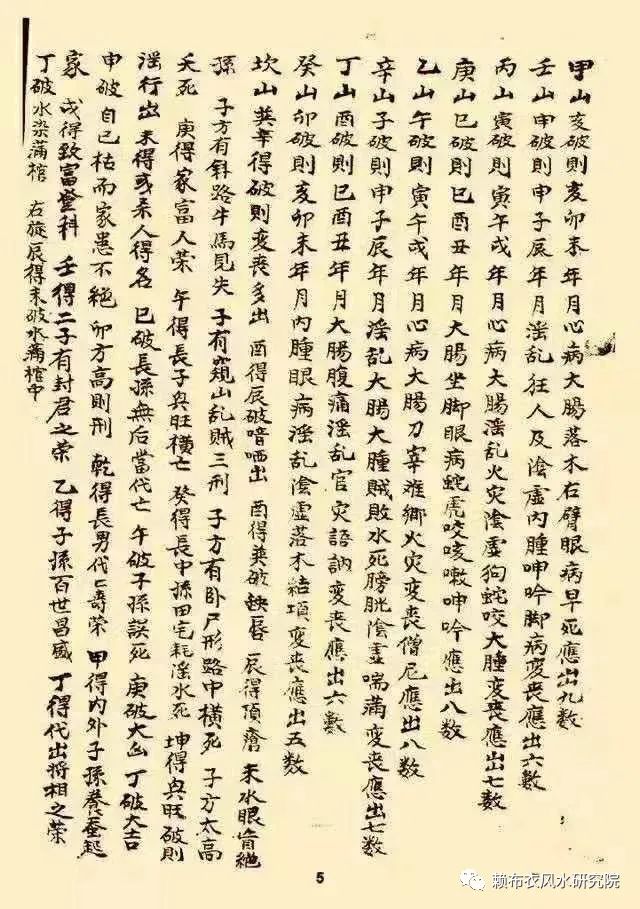 甲山亥破則亥卯未年月心病大腸落木右臂眼病早死應出九數
壬山申破則申子辰年月淫乱狂人及陰虛內腫呻吟脚病変喪應出六數
丙山寅破則寅午戌年月心病大腸淫乱火灾陰虛狗蛇咬大腫変喪應出七数
庚山巳破則巳酉丑年月大腸坐脚眼病蛇虎咬咳嗽呻吟應出八数
乙山午破則寅午戌年月心病大腸刀宰难鄉火灾変喪僧尼應出八数
辛山子破則申子辰年月淫乱大腸大腫賊敗水死膀胱陰虛喘滿変喪應出七数
丁山酉破則巳酉丑年月大腸腹痛淫乱官灾語訥変喪應出六數
癸山卯破則亥卯未年月內腫眼病淫乱陰虛落木結項変喪應出五数
坎山巽辛得破則変喪多出 酉得辰破喑哂出 酉得巽破缺唇 辰得頂瘡 未水眼盲絕
孫 子方有斜路牛馬見失 子有窺山乱賊三刑 子方有卧尸形路中横死 子方太高
夭死 庚得家富人荣 午得長子兴旺横亡 癸得長中孫田宅耗淫水死 坤得兴旺破則
淫行出 未得或杀人得名 巳破長孫無后當代亡 午破子孫誤死 庚破大凶 丁破大吉
申破自己枯而家患不絕 卯方高則刑 乾得長男代代奇荣 甲得內外子孫養蚕起
家 戌得致富登科 壬得二子有封君之荣 乙得子孫百世昌盛 丁得代出將相之荣
丁破水染滿棺 右旋辰得未破水滿棺中
5
赖布衣风水研究院